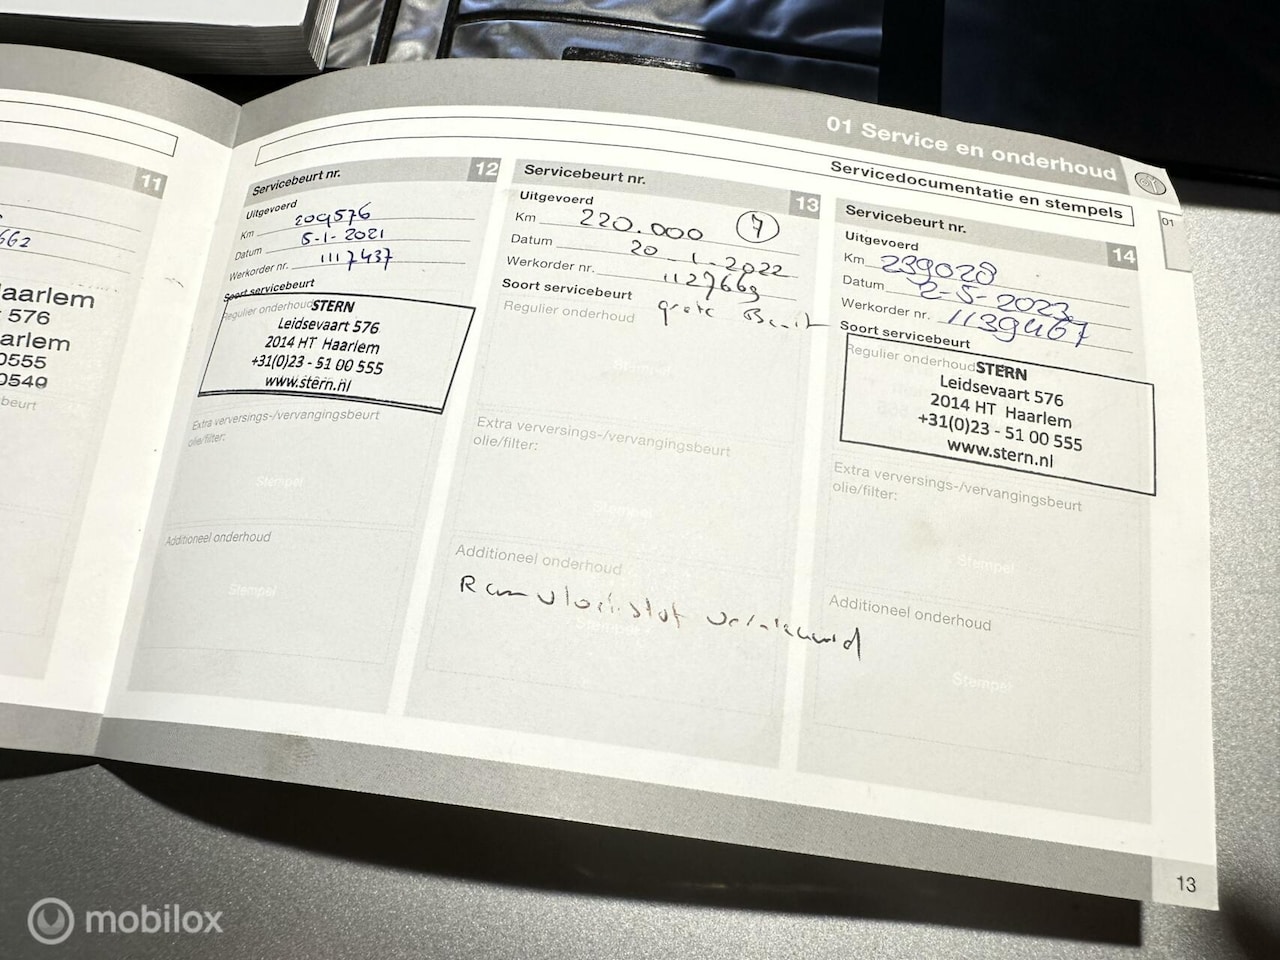 01 Service en onderhoud
Servicedocumentatie en stempels
01
11
662
aarlem
576
aarlem
0555
0540
beurt
Servicebeurt nr. 12
Uitgevoerd
Km 209576
Datum 5-1-2021
Werkorder nr. 1117437
Soort servicebeurt
Regulier onderhoud
STERN
Leidsevaart 576
2014 HT Haarlem
+31(0)23 - 51 00 555
www.stern.nl
Extra verversings-/vervangingsbeurt
olie/filter:
Stempel
Additioneel onderhoud
Stempel
Servicebeurt nr. 13
Uitgevoerd
Km 220.000 7
Datum 20-1-2022
Werkorder nr. 1127663
Soort servicebeurt
Regulier onderhoud grote Beurt
Stempel
Extra verversings-/vervangingsbeurt
olie/filter:
Stempel
Additioneel onderhoud
Remvloeistof vernieuwd
Stempel
Servicebeurt nr. 14
Uitgevoerd
Km 239028
Datum 2-5-2023
Werkorder nr. 1139467
Soort servicebeurt
Regulier onderhoud
STERN
Leidsevaart 576
2014 HT Haarlem
+31(0)23 - 51 00 555
www.stern.nl
Extra verversings-/vervangingsbeurt
olie/filter:
Stempel
Additioneel onderhoud
Stempel
13
mobilox